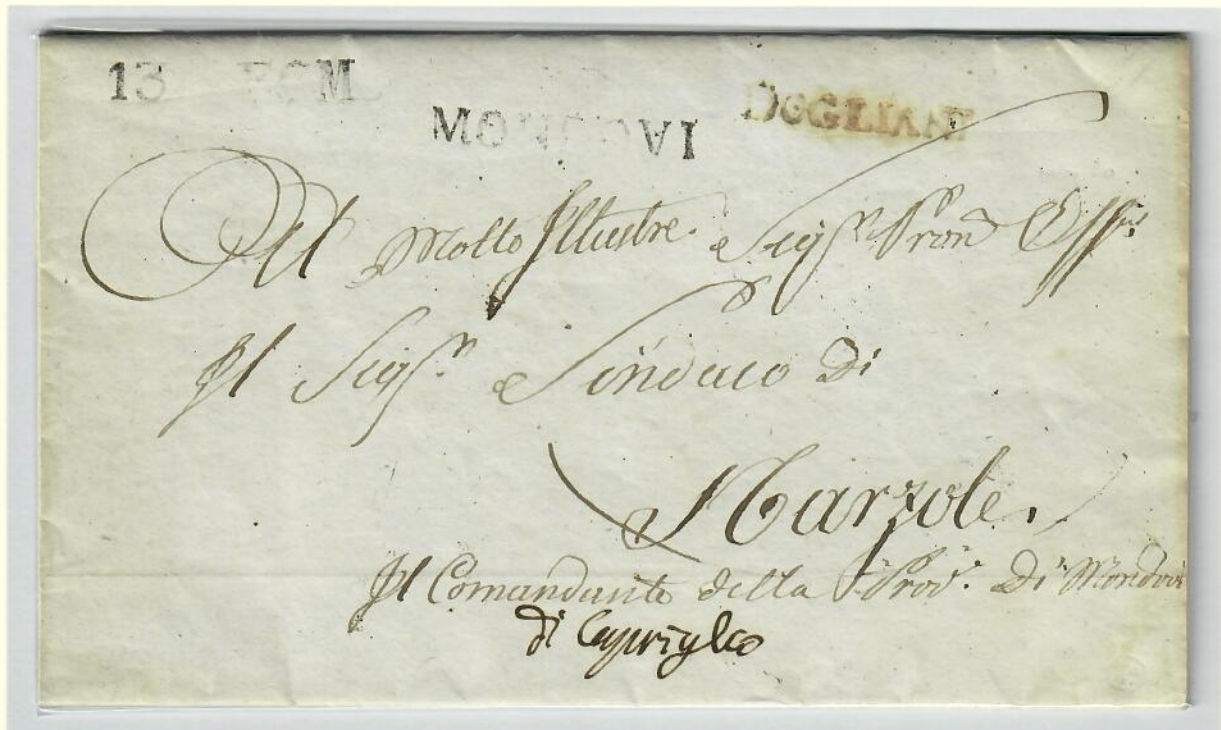 13 ECM
MONDOVI
DOGLIANI
Al Molto Illustre Sigr
Il Sigr Sindaco Di
Narzole.
Il Comandante della Prov. Di Mondovi
di Capriglio